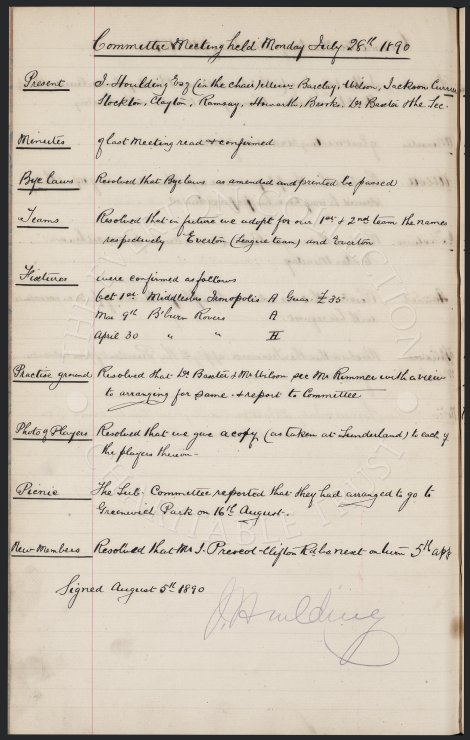 Committee Meeting held Monday July 28th 1890
Present J. Houlding Esq (in the chair) Messrs Barclay, Wilson, Jackson, Currier
Stockton, Clayton, Ramsay, Howarth, Brooks, Dr Baxter & the Sec.
Minutes of last Meeting read & confirmed
Bye laws Resolved that Byelaws as amended and printed be passed
Teams Resolved that in future we adopt for our 1st & 2nd team the names
respectively Everton (League team) and Everton
Fixtures were confirmed as follows
Oct 1st Middlesbro Ironopolis A Guar. £35
Mar 9th B'burn Rovers A
April 30 " " H
Practise ground Resolved that Dr. Baxter & Mr Wilson see Mr Rimmer with a view
to arranging for same & report to Committee
Photo of Players Resolved that we give a copy (as taken at Sunderland) to each of
the players thereon
Picnic The Sub-Committee reported that they had arranged to go to
Greenwich Park on 16th August.
New Members Resolved that Mr J. Prescot Clifton be next on turn 5th
Signed August 5th 1890
J. Houlding